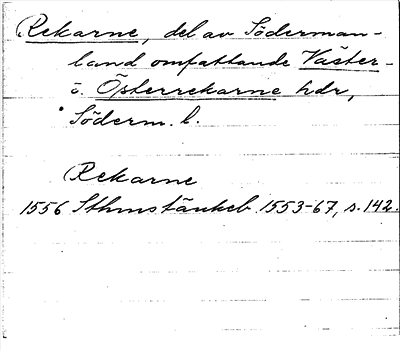 Rekarne, del av Söderman-
land omfattande Väster-
o. Österrekarne hdr,
Söderm. l.
Rekarne
1556 Sthmstänkeb. 1553-67, s. 142.